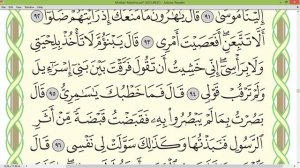 إِلَيْنَا مُوسَىٰ ٩١ قَالَ يَٰهَٰرُونُ مَا مَنَعَكَ إِذْ رَأَيْتَهُمْ ضَلُّوٓا۟ ٩٢
أَلَّا تَتَّبِعَنِ أَفَعَصَيْتَ أَمْرِى ٩٣ قَالَ يَبْنَؤُمَّ لَا تَأْخُذْ بِلِحْيَتِى
وَلَا بِرَأْسِىٓ إِنِّى خَشِيتُ أَن تَقُولَ فَرَّقْتَ بَيْنَ بَنِىٓ إِسْرَٰٓءِيلَ
وَلَمْ تَرْقُبْ قَوْلِى ٩٤ قَالَ فَمَا خَطْبُكَ يَٰسَٰمِرِىُّ ٩٥ قَالَ
بَصُرْتُ بِمَا لَمْ يَبْصُرُوا۟ بِهِۦ فَقَبَضْتُ قَبْضَةً مِّنْ أَثَرِ
ٱلرَّسُولِ فَنَبَذْتُهَا وَكَذَٰلِكَ سَوَّلَتْ لِى نَفْسِى ٩٦